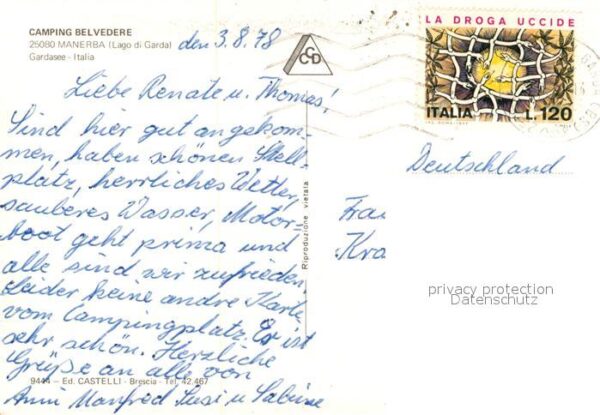 CAMPING BELVEDERE
25080 MANERBA (Lago di Garda)
Gardasee - Italia
den 3.8.78
Liebe Renate u. Thomas!
Sind hier gut angekom-
men, haben schönen Stell-
platz, herrliches Wetter,
sauberes Wasser, Motor-
boot geht prima und
alle sind wir zufrieden.
Leider keine andre Karte
vom Campingplatz. Er ist
sehr schön. Herzliche
Grüße an alle von
Anni Manfred Susi u. Sabine
9444 - Ed. CASTELLI - Brescia - Tel. 42.467
CCD
Riproduzione vietata
LA DROGA UCCIDE
ITALIA L.120
Deutschland
Fra
Kra
privacy protection
Datenschutz